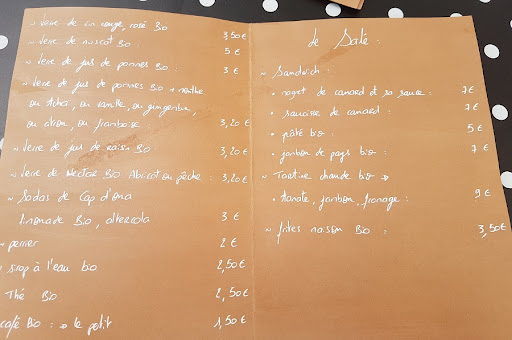 ~ Verre de vin rouge, rosé Bio 3,50€
~ Verre de muscat Bio : 5 €
~ Verre de jus de pommes Bio : 3 €
~ Verre de jus de pommes Bio + menthe
ou tchaï, ou vanille, ou gingembre,
ou citron, ou framboise 3,20 €
~ Verre de jus de raisin Bio 3,20€
~ Verre de Nectar Bio Abricot ou pêche : 3,20€
~ Sodas de Cap d'ona
limonade Bio, altercola 3 €
~ perrier 2 €
~ sirop à l'eau bio 2,50€
Thé Bio 2,50€
café Bio : → le petit 1,50€
le Salé :
~ Sandwich :
• magret de canard et sa sauce : 7€
• saucisse de canard : 7€
• pâté bio : 5€
• jambon de pays bio : 7€
~ Tartine chaude bio →
• tomate, jambon, fromage : 9€
~ frites maison Bio : 3,50€